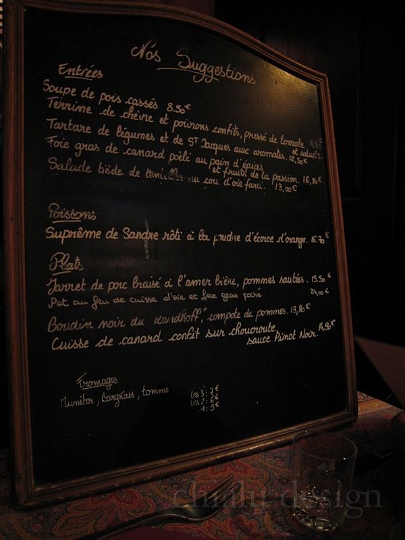 Nos Suggestions
Entrées
Soupe de pois cassés 8.50€
Terrine de chèvre et poivrons confits, pressé de tomate
et salade
Tartare de légumes et de St Jacques aux aromates. 12,50€
Foie gras de canard poêlé au pain d'épices
et fruits de la passion. 16,80€
Salade tiède de lentilles au cou d'oie farci. 13,00€
Poissons
Suprême de Sandre rôti à la poudre d'écorce d'orange. 15.70€
Plats
Jarret de porc braisé à l'amer bière, pommes sautés. 15.50€
Pot au feu de cuisse d'oie et foie gras poêlé 24,00€
Boudin noir du compote de pommes. 13,80€
Cuisse de canard confit sur choucroute 16,50€
sauce Pinot Noir.
Fromages
Munster, bargkas, tomme les 3: 7€
les 2: 6€
1: 5€
chulu design